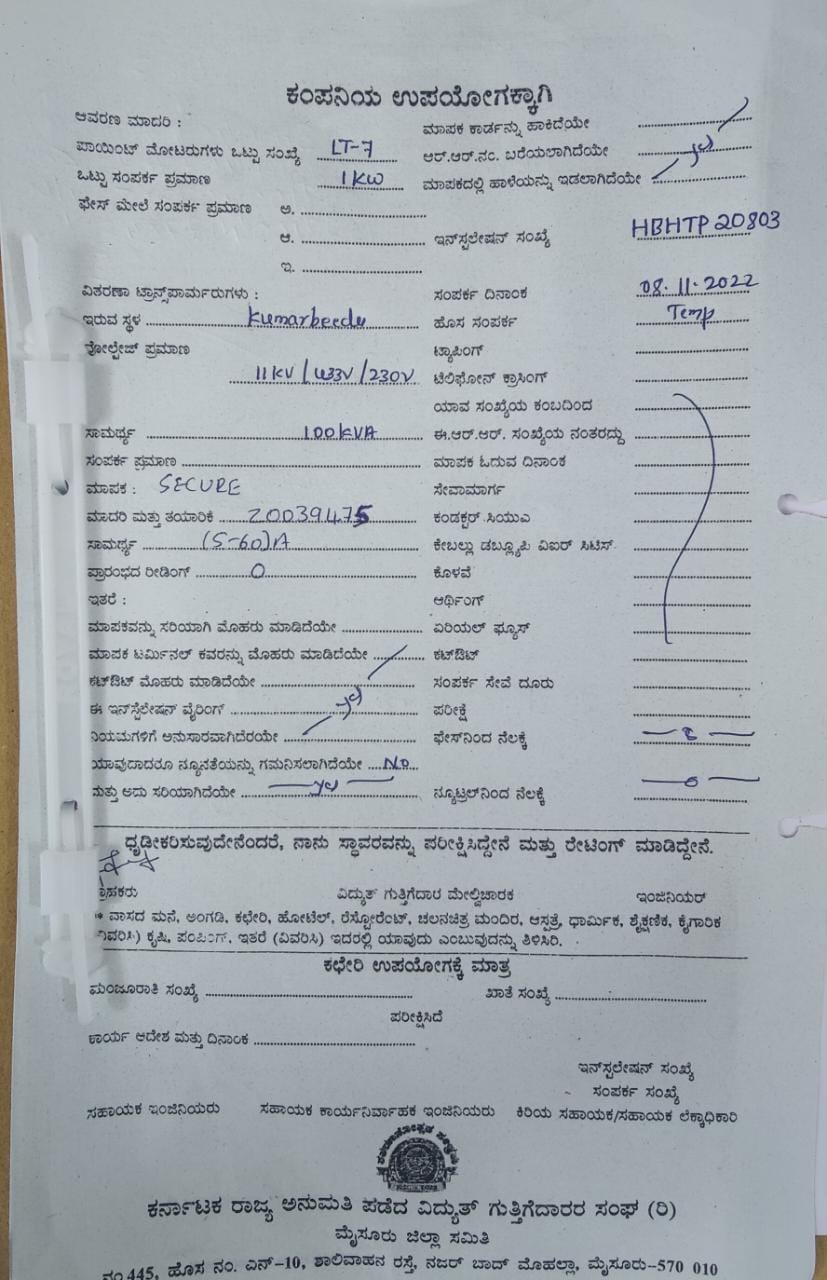 ಕಂಪನಿಯ ಉಪಯೋಗಕ್ಕಾಗಿ
ಆವರಣ ಮಾದರಿ : ಮಾಪಕ ಕಾರ್ಡನ್ನು ಹಾಕಿದೆಯೇ
ಪಾಯಿಂಟ್ ಮೋಟರುಗಳು ಒಟ್ಟು ಸಂಖ್ಯೆ LT-7 ಆರ್.ಆರ್.ನಂ. ಬರೆಯಲಾಗಿದೆಯೇ
ಒಟ್ಟು ಸಂಪರ್ಕ ಪ್ರಮಾಣ 1KW ಮಾಪಕದಲ್ಲಿ ಹಾಳೆಯನ್ನು ಇಡಲಾಗಿದೆಯೇ
ಫೇಸ್ ಮೇಲೆ ಸಂಪರ್ಕ ಪ್ರಮಾಣ ಅ.
ಆ. ಇನ್‌ಸ್ಟಲೇಷನ್ ಸಂಖ್ಯೆ HBHTP20803
ಇ.
ವಿತರಣಾ ಟ್ರಾನ್ಸ್‌ಪಾರ್ಮರುಗಳು : ಸಂಪರ್ಕ ದಿನಾಂಕ 08.11.2022
ಇರುವ ಸ್ಥಳ Kumarbeedu ಹೊಸ ಸಂಪರ್ಕ Temp
ವೋಲ್ಟೇಜ್ ಪ್ರಮಾಣ ಟ್ಯಾಪಿಂಗ್
11KV/433V/230V ಟೆಲಿಫೋನ್ ಕ್ರಾಸಿಂಗ್
ಯಾವ ಸಂಖ್ಯೆಯ ಕಂಬದಿಂದ
ಸಾಮರ್ಥ್ಯ 100KVA ಈ.ಆರ್.ಆರ್. ಸಂಖ್ಯೆಯ ನಂತರದ್ದು
ಸಂಪರ್ಕ ಪ್ರಮಾಣ ಮಾಪಕ ಓದುವ ದಿನಾಂಕ
ಮಾಪಕ : SECURE ಸೇವಾಮಾರ್ಗ
ಮಾದರಿ ಮತ್ತು ತಯಾರಿಕೆ 20039475 ಕಂಡಕ್ಟರ್ ಸಿಯುಎ
ಸಾಮರ್ಥ್ಯ (5-60)A ಕೇಬಲ್ಲು ಡಬ್ಲ್ಯೂಪಿ ವಿಐಆರ್ ಸಿಟಿಸ್
ಪ್ರಾರಂಭದ ರೀಡಿಂಗ್ 0 ಕೊಳವೆ
ಇತರೆ : ಆರ್ಥಿಂಗ್
ಮಾಪಕವನ್ನು ಸರಿಯಾಗಿ ಮೊಹರು ಮಾಡಿದೆಯೇ ಏರಿಯಲ್ ಫ್ಯೂಸ್
ಮಾಪಕ ಟರ್ಮಿನಲ್ ಕವರನ್ನು ಮೊಹರು ಮಾಡಿದೆಯೇ ಕಟ್‌ಔಟ್
ಕಟ್‌ಔಟ್ ಮೊಹರು ಮಾಡಿದೆಯೇ ಸಂಪರ್ಕ ಸೇವೆ ದೂರು
ಈ ಇನ್‌ಸ್ಟಲೇಷನ್ ವೈರಿಂಗ್ ಪರೀಕ್ಷೆ
ನಿಯಮಗಳಿಗೆ ಅನುಸಾರವಾಗಿದೆರಯೇ ಫೇಸ್‌ನಿಂದ ನೆಲಕ್ಕೆ
ಯಾವುದಾದರೂ ನ್ಯೂನತೆಯನ್ನು ಗಮನಿಸಲಾಗಿದೆಯೇ No
ಮತ್ತು ಅದು ಸರಿಯಾಗಿದೆಯೇ ನ್ಯೂಟ್ರಲ್‌ನಿಂದ ನೆಲಕ್ಕೆ
ಧೃಡೀಕರಿಸುವುದೇನೆಂದರೆ, ನಾನು ಸ್ಥಾವರವನ್ನು ಪರೀಕ್ಷಿಸಿದ್ದೇನೆ ಮತ್ತು ರೇಟಿಂಗ್ ಮಾಡಿದ್ದೇನೆ.
ವಿದ್ಯುತ್ ಗುತ್ತಿಗೆದಾರ ಮೇಲ್ವಿಚಾರಕ ಇಂಜಿನಿಯರ್
ವಾಸದ ಮನೆ, ಅಂಗಡಿ, ಕಛೇರಿ, ಹೋಟೆಲ್, ರೆಸ್ಟೋರೆಂಟ್, ಚಲನಚಿತ್ರ ಮಂದಿರ, ಆಸ್ಪತ್ರೆ, ಧಾರ್ಮಿಕ, ಶೈಕ್ಷಣಿಕ, ಕೈಗಾರಿಕ
ಕೃಷಿ, ಪಂಪಿಂಗ್, ಇತರೆ (ವಿವರಿಸಿ) ಇದರಲ್ಲಿ ಯಾವುದು ಎಂಬುವುದನ್ನು ತಿಳಿಸಿರಿ.
ಕಛೇರಿ ಉಪಯೋಗಕ್ಕೆ ಮಾತ್ರ
ಮಂಜೂರಾತಿ ಸಂಖ್ಯೆ ಖಾತೆ ಸಂಖ್ಯೆ
ಪರೀಕ್ಷಿಸಿದೆ
ಕಾರ್ಯ ಆದೇಶ ಮತ್ತು ದಿನಾಂಕ
ಇನ್‌ಸ್ಟಲೇಷನ್ ಸಂಖ್ಯೆ
ಸಂಪರ್ಕ ಸಂಖ್ಯೆ
ಸಹಾಯಕ ಇಂಜಿನಿಯರು ಸಹಾಯಕ ಕಾರ್ಯನಿರ್ವಾಹಕ ಇಂಜಿನಿಯರು ಕಿರಿಯ ಸಹಾಯಕ/ಸಹಾಯಕ ಲೆಕ್ಕಾಧಿಕಾರಿ
ಕರ್ನಾಟಕ ರಾಜ್ಯ ಅನುಮತಿ ಪಡೆದ ವಿದ್ಯುತ್ ಗುತ್ತಿಗೆದಾರರ ಸಂಘ (ರಿ)
ಮೈಸೂರು ಜಿಲ್ಲಾ ಸಮಿತಿ
ನಂ.445, ಹೊಸ ನಂ. ಎನ್-10, ಶಾಲಿವಾಹನ ರಸ್ತೆ, ನಜರ್ ಬಾದ್ ಮೊಹಲ್ಲಾ, ಮೈಸೂರು-570 010